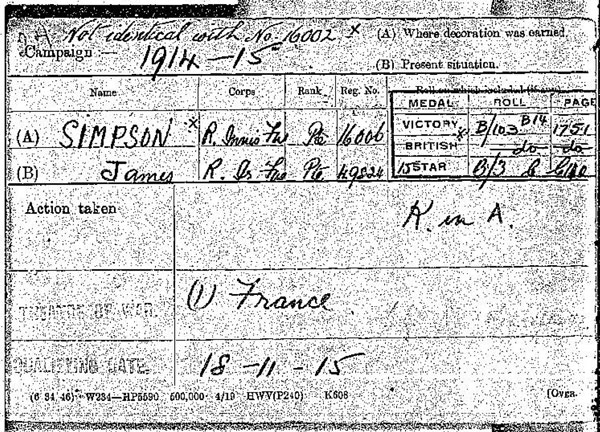 Not identical with No. 16002 x (A) Where decoration was earned.
Campaign :— 1914-15 (B) Present situation.
Name Corps Rank Reg. No. Roll on which included (if any)
MEDAL ROLL PAGE
(A) SIMPSON x R. Innis Fus Pte 16006 VICTORY x B/103 B14 1751
BRITISH do do
(B) James R. Ir. Fus Pte 49824 15 STAR B/3
Action taken K. in A.
THEATRE OF WAR. (1) France
QUALIFYING DATE. 18-11-15
(6 34 46) W234—HP5590 500,000 4/19 HWV(P240) K608 [Over.